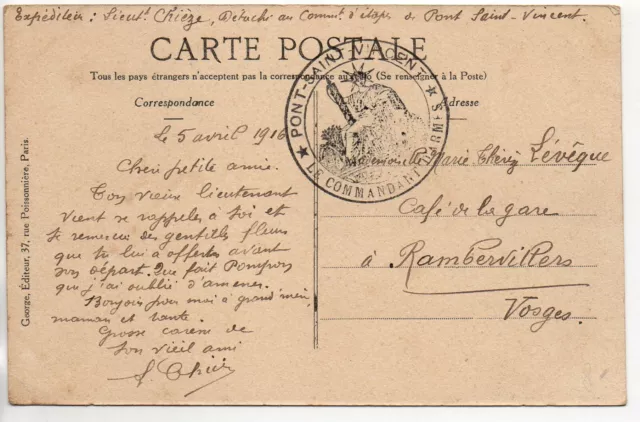 Expéditeur : Lieut. Chièze, Détaché au Commt. d'étapes de Pont Saint-Vincent.
CARTE POSTALE
Tous les pays étrangers n'acceptent pas la correspondance au (Se renseigner à la Poste)
Correspondance
Adresse
PONT-SAINT-VINCENT
LE COMMANDANT D'ARMES
Le 5 avril 1916
Chère petite amie.
Ton vieux lieutenant
vient se rappeler à toi et
te remercier des gentilles fleurs
que tu lui a offertes avant
son départ. Que fait Pompon
que j'ai oublié d'amener.
Bonjour pour moi à grand'mère,
maman et tante.
Grosse caresse de
ton vieil ami
Mademoiselle Marie Thérèz Lévêque
Café de la gare
à Rambervillers
Vosges.
George, Éditeur, 37, rue Poissonnière, Paris.